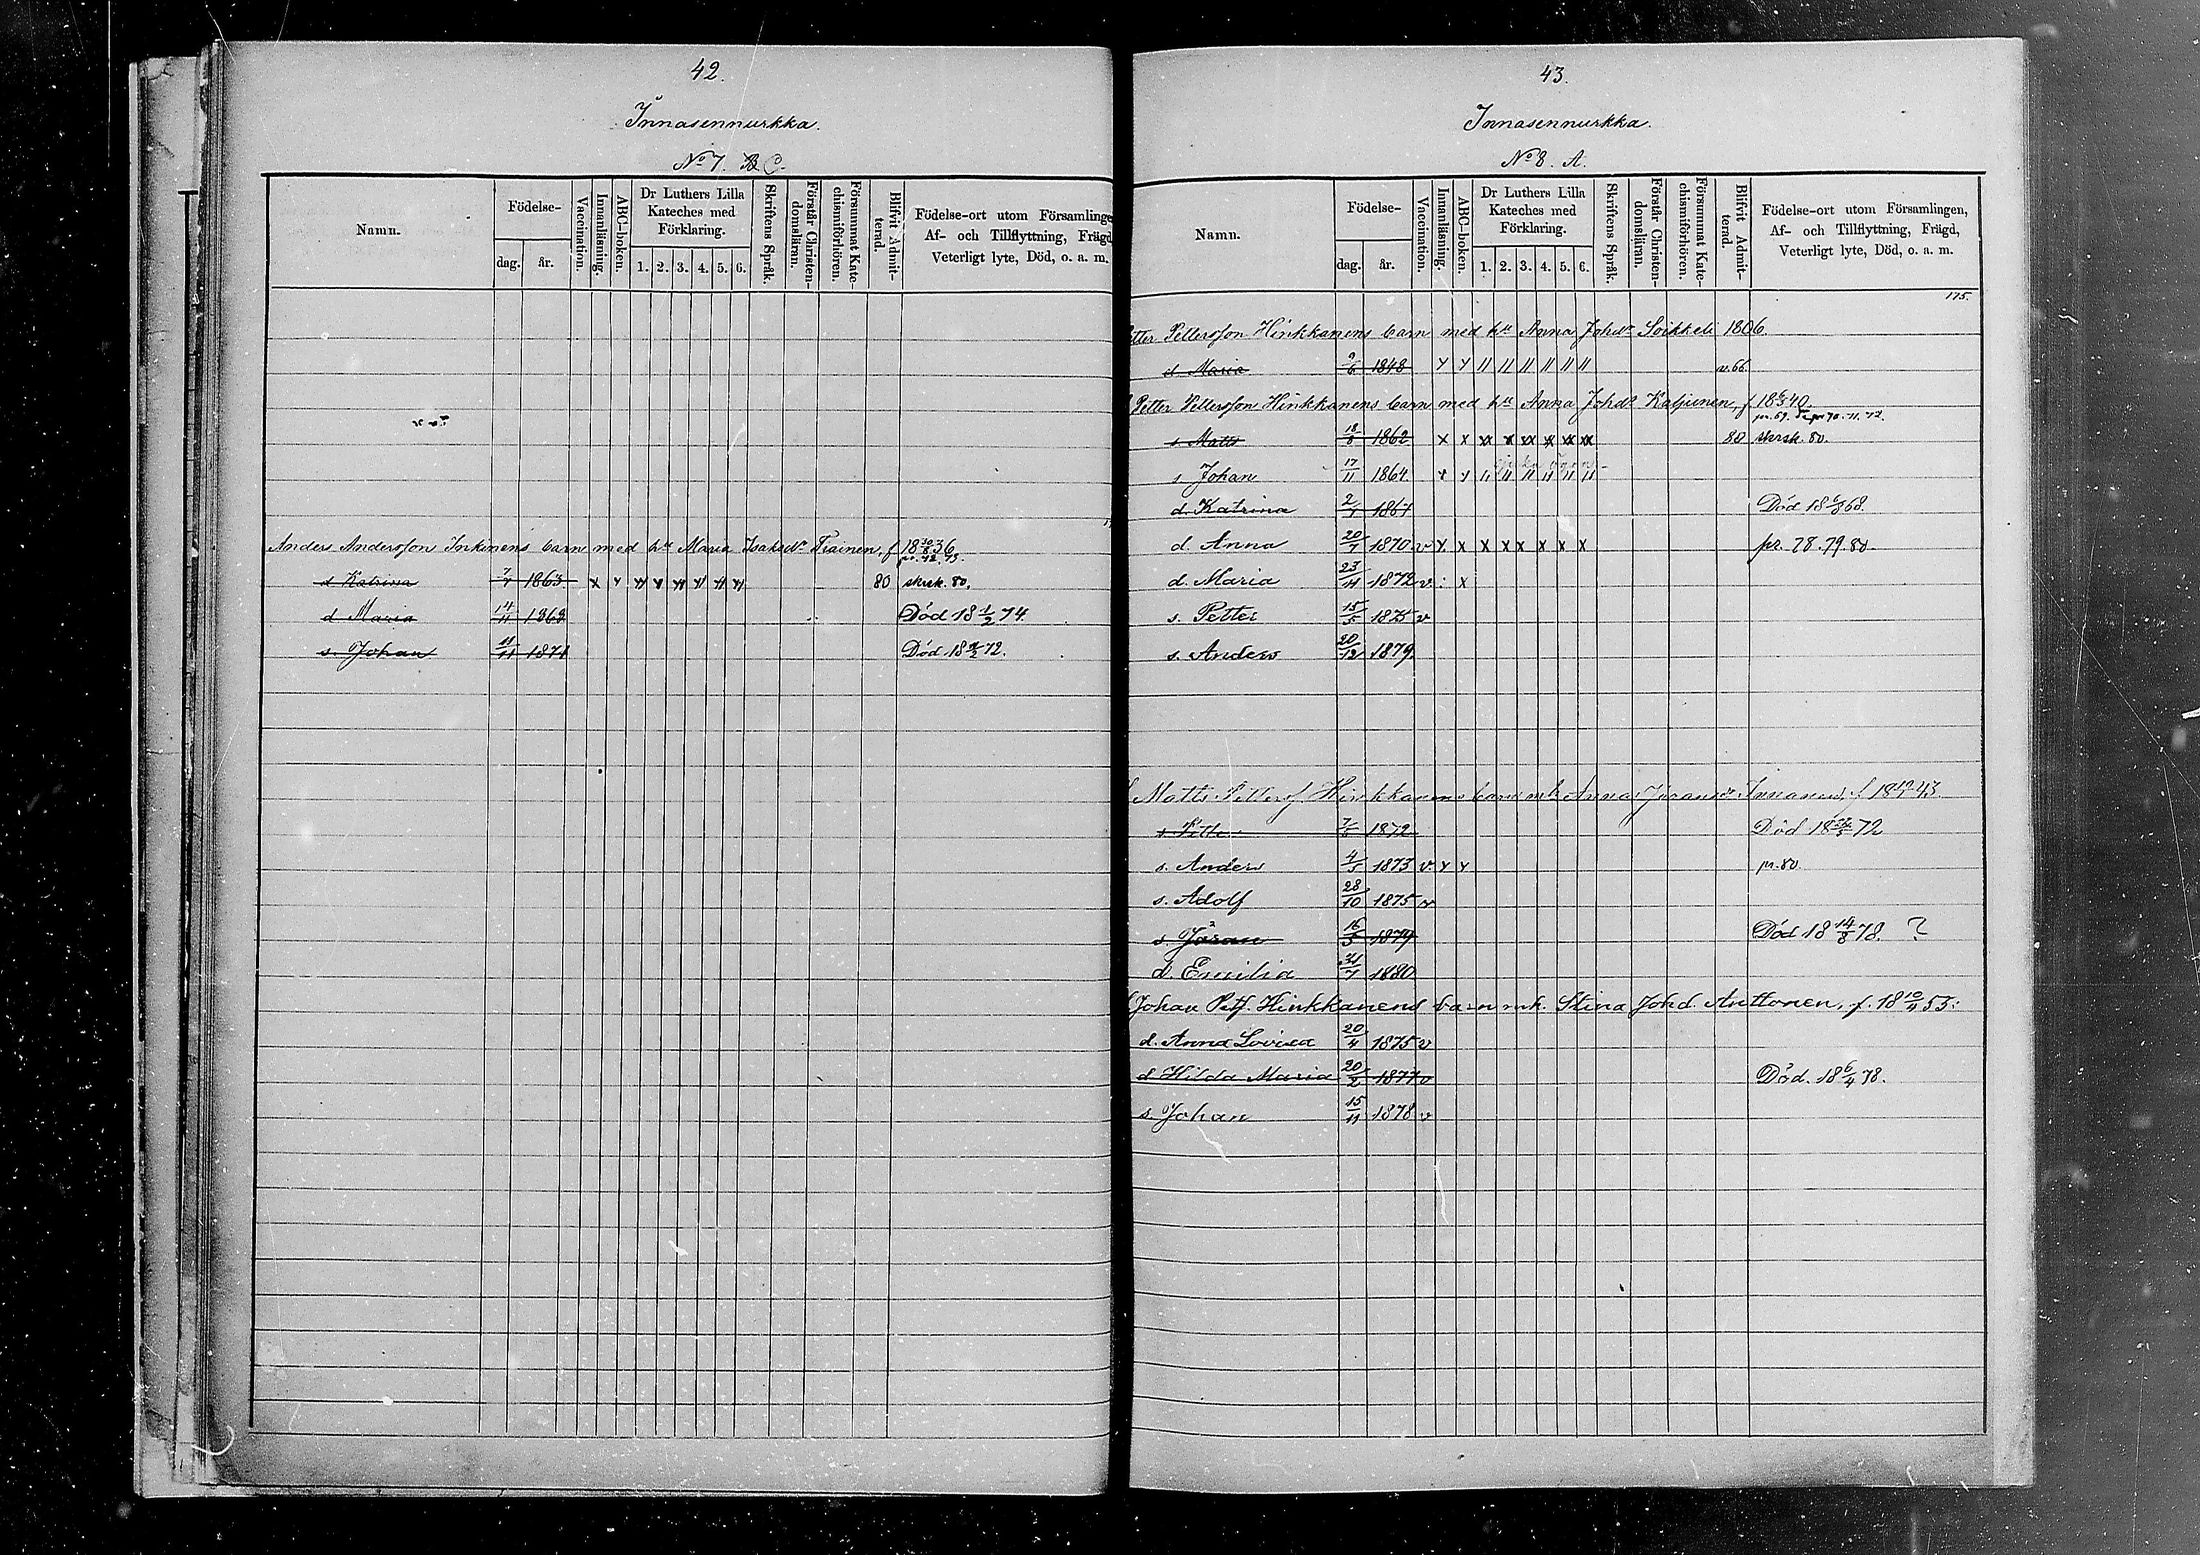 42.
Innasennurkka.
No 7. B C.
Namn.
Födelse-
dag. år.
Vaccination.
Innanläsning.
ABC-boken.
Dr Luthers Lilla Kateches med Förklaring.
1. 2. 3. 4. 5. 6.
Skriftens Språk.
Förstår Christendomsläran.
Försummat Katechismiförhören.
Blifvit Admitterad.
Födelse-ort utom Församlinge
Af- och Tillflyttning, Frägd
Veterligt lyte, Död, o. a. m.
Anders Andersson Inkinens barn med hu Maria Isaksdr Tiainen, f 18 30/8 36
s Katrina 7/7 1863 80 skrsk. 80.
d Maria 14/11 1868 Död 18 1/2 74
s. Johan 11/11 1871 Död 18 2/2 72.
43.
Innasennurkka.
No 8. A.
Namn.
Födelse-
dag. år.
Vaccination.
Innanläsning.
ABC-boken.
Dr Luthers Lilla Kateches med Förklaring.
1. 2. 3. 4. 5. 6.
Skriftens Språk.
Förstår Christendomsläran.
Försummat Katechismiförhören.
Blifvit Admitterad.
Födelse-ort utom Församlingen,
Af- och Tillflyttning, Frägd,
Veterligt lyte, Död, o. a. m.
175.
etter Pettersson Hinkkanens barn med hu Anna Johdr Soikkeli 1806
d Maria 9/6 1848 v. 66.
Petter Pettersson Hinkkanens barn med hu Anna Johdr Kaljunen, f 18 6/3 40.
s Matts 18/8 1862 80 skrsk. 80.
s Johan 17/11 1864
d. Katrina 2/7 1867 Död 18 6/8 68.
d. Anna 20/7 1870 v pr. 78. 79. 80.
d. Maria 23/11 1872 v.
s. Petter 15/5 1875 v
s. Anders 20/12 1879.
Matts Petterss Hinkkanens barn mh Anna Jöransdr Innanen, f 18 17/7 43.
s Petter 7/5 1872 Död 18 24/5 72
s. Anders 4/5 1873 v. pr. 80
s. Adolf 28/10 1875 v
s. Jöran 16/5 1879 Död 18 14/8 78. ?
d. Emilia 31/7 1880
Johan Petf. Hinkkanens barn mh. Stina Johd. Anttonen, f. 18 10/4 53:
d. Anna Lovisa 20/4 1875 v
d Hilda Maria 20/2 1877 v Död. 18 6/4 78.
s. Johan 15/11 1878 v